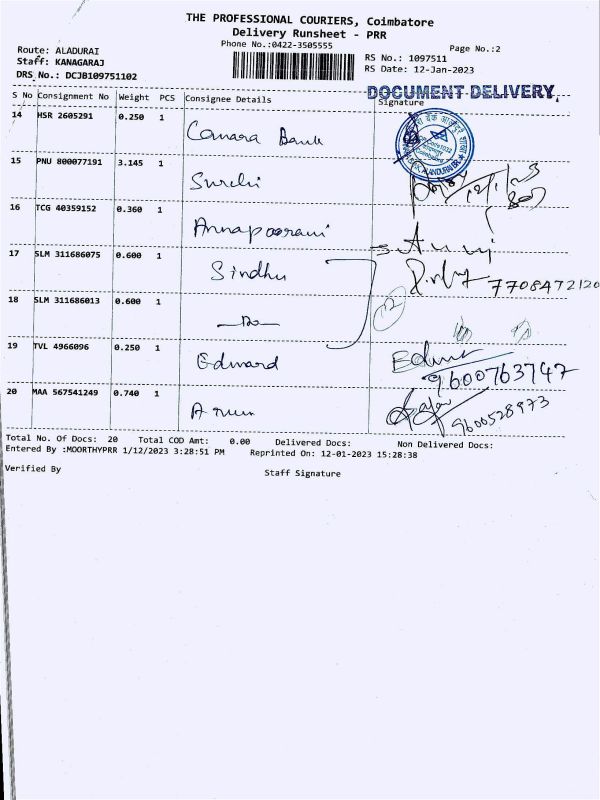 THE PROFESSIONAL COURIERS, Coimbatore
Delivery Runsheet - PRR
Phone No.:0422-3505555
Page No.:2
Route: ALADURAI
Staff: KANAGARAJ
DRS No.: DCJB109751102
RS No.: 1097511
RS Date: 12-Jan-2023
DOCUMENT DELIVERY.
S No Consignment No Weight PCS Consignee Details Signature
14 HSR 2605291 0.250 1 Canara Bank
15 PNU 800077191 3.145 1
16 TCG 40359152 0.360 1 Annapoorani
17 SLM 311686075 0.600 1 Sindhu 7708472120
18 SLM 311686013 0.600 1 —Do—
19 TVL 4966096 0.250 1 Edward 9600763747
20 MAA 567541249 0.740 1 Arun 9600528973
Total No. Of Docs: 20 Total COD Amt: 0.00 Delivered Docs: Non Delivered Docs:
Entered By :MOORTHYPRR 1/12/2023 3:28:51 PM Reprinted On: 12-01-2023 15:28:38
Verified By Staff Signature